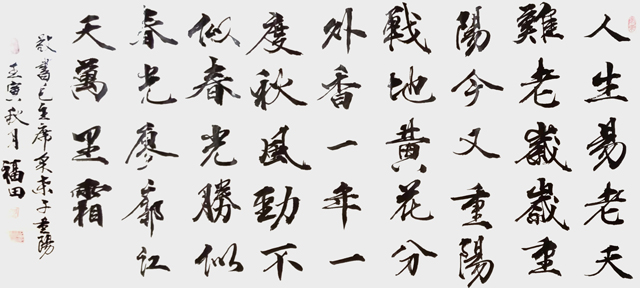 人生易老天
難老歲歲重
陽今又重陽
戰地黃花分
外香一年一
度秋風勁不
似春光勝似
春光廖廓江
天萬里霜
書毛主席采桑子重陽
壬寅秋月福田